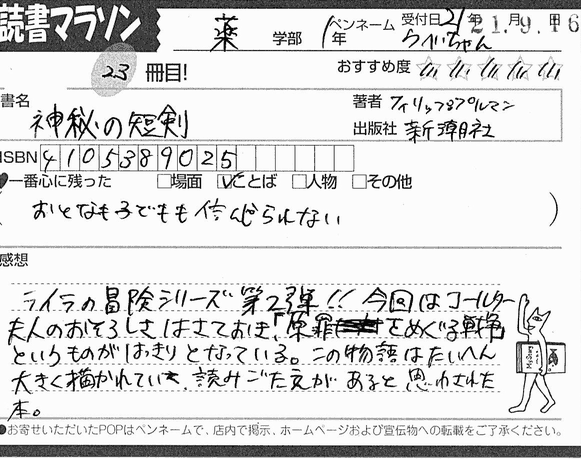 読書マラソン
薬 学部 1年 ペンネーム らいちゃん 受付日 21.9.16
23 冊目!
おすすめ度 ☆☆☆☆☆
書名 神秘の短剣
著者 フィリップ・プルマン
出版社 新潮社
ISBN 4105389025
一番心に残った □場面 ☑ことば □人物 □その他
(おとなも子どもも信じられない)
感想
ライラの冒険シリーズ第2弾!! 今回はコールター
夫人のおそろしさはさておき、「原罪」をめぐる戦争
というものがはっきりとなっている。この物語はたいへん
大きく描かれていて、読みごたえがあると思わされた
本。
●お寄せいただいたPOPはペンネームで、店内で掲示、ホームページおよび宣伝物への転載をご了承ください。